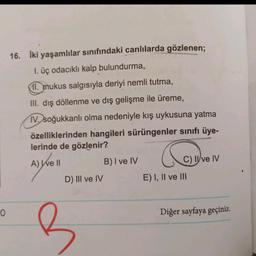 16. İki yaşamlılar sınıfındaki canlılarda gözlenen;
I. üç odacıklı kalp bulundurma,
II. mukus salgısıyla deriyi nemli tutma,
III. dış döllenme ve dış gelişme ile üreme,
IV. soğukkanlı olma nedeniyle kış uykusuna yatma
özelliklerinden hangileri sürüngenler sınıfı üye-
lerinde de gözlenir?
A) I ve II B) I ve IV C) II ve IV
D) III ve IV E) I, II ve III
B
Diğer sayfaya geçiniz.